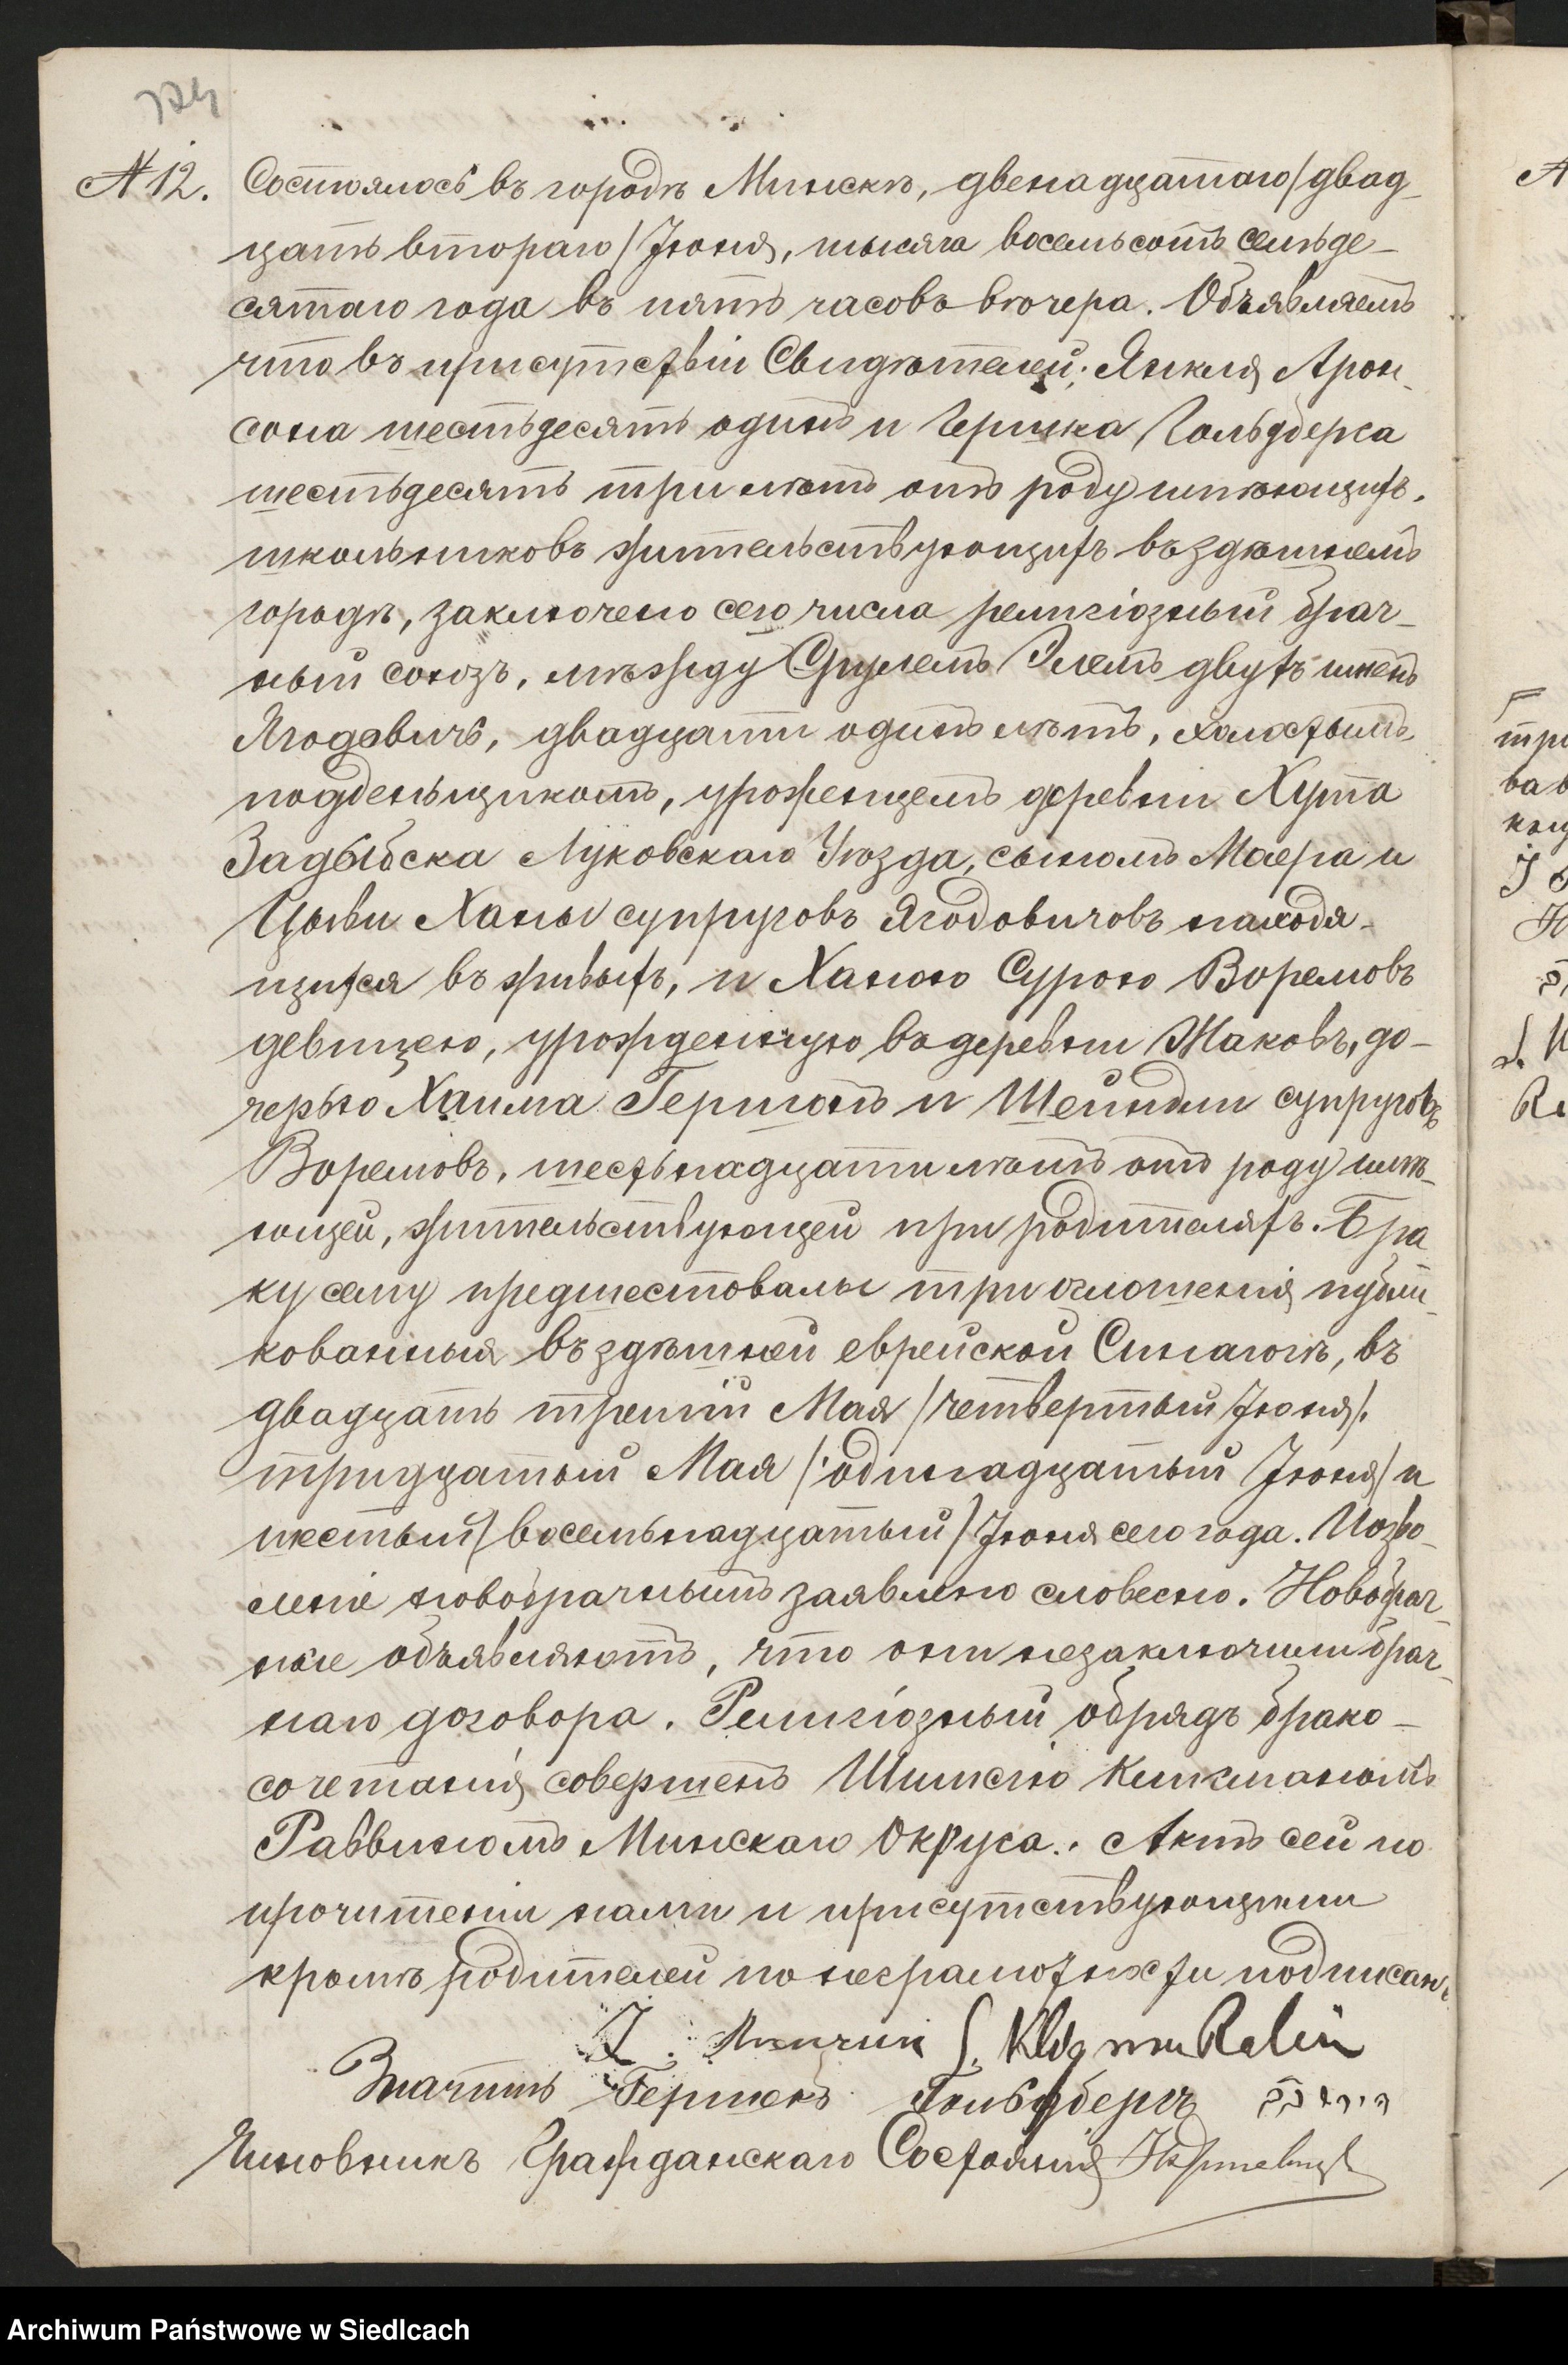 124
№ 12.
Состоялось въ городѣ Минскѣ, двенадцатаго/двад-
цать втораго/Іюня, тысяча восемьсотъ семьде-
сятаго года въ пять часовъ вечера. Объявляемъ
что въ присутствіи Свидѣтелей: Янкля Арон-
сона шестьдесятъ одинъ и Гершка Гольдберга
шестьдесятъ три лѣтъ отъ роду имѣющихъ.
школьниковъ жительствующихъ въ здѣшнемъ
городѣ, заключено сего числа религіозный брач-
ный союзъ, мѣжду Срулемъ Элемъ двухъ имёнъ
Ягодовичъ, двадцати одинъ лѣтъ, холостымъ
подденьщикомъ, уроженцемъ деревни Хута
Задыбска Луковскаго Уѣзда, сыномъ Маера и
Цыви Ханы супруговъ Ягодовичовъ находя-
щихся въ живыхъ, и Ханою Сурою Воремовъ
девицею, урожденную въ деревни Жаковъ, до-
черью Хаима Гершонъ и Шейндли супруговъ
Воремовъ, шестьнадцати лѣтъ отъ роду имѣ-
ющей, жительствующей при родителяхъ. Бра
ку сему предшествовалы три оглошенія публи-
кованныя въ здѣшней еврейской Синагогѣ, въ
двадцать третій Мая /четвертый Іюня/.
тридцатый Мая /:одинадцатый Іюня/ и
шестый/восемьнадцатый/Іюня сего года. Позво-
леніе новобрачнымъ заявлено словесно. Новобрач-
ные объявляютъ, что они незаключили брач-
наго договора. Религіозный обрядъ брако-
сочетанія совершенъ Шимсио Клигманомъ
Раввиномъ Минскаго Округа. Актъ сей по
прочитеніи нами и присутствующими
кромѣ родителей по неграмотности подписанъ
S. Rabin
Значитъ Гершекъ Гольдбергъ
Чиновникъ Гражданскаго Состоянія
Archiwum Państwowe w Siedlcach